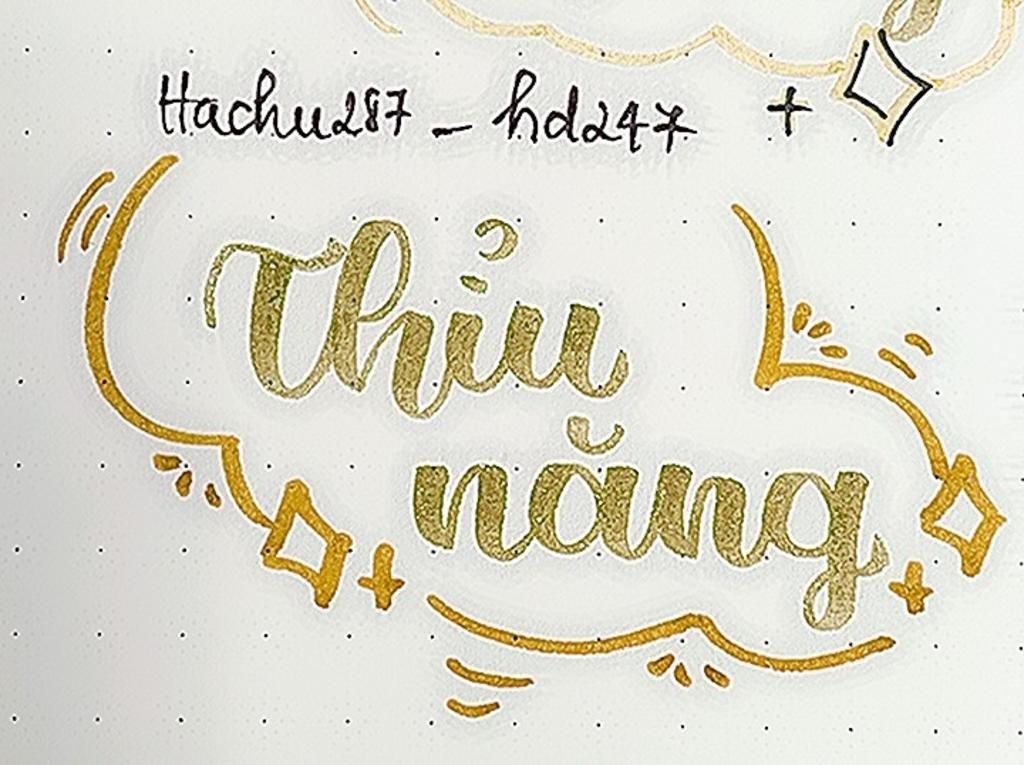 Hachu287 - hd247 +
Thỉu
năng